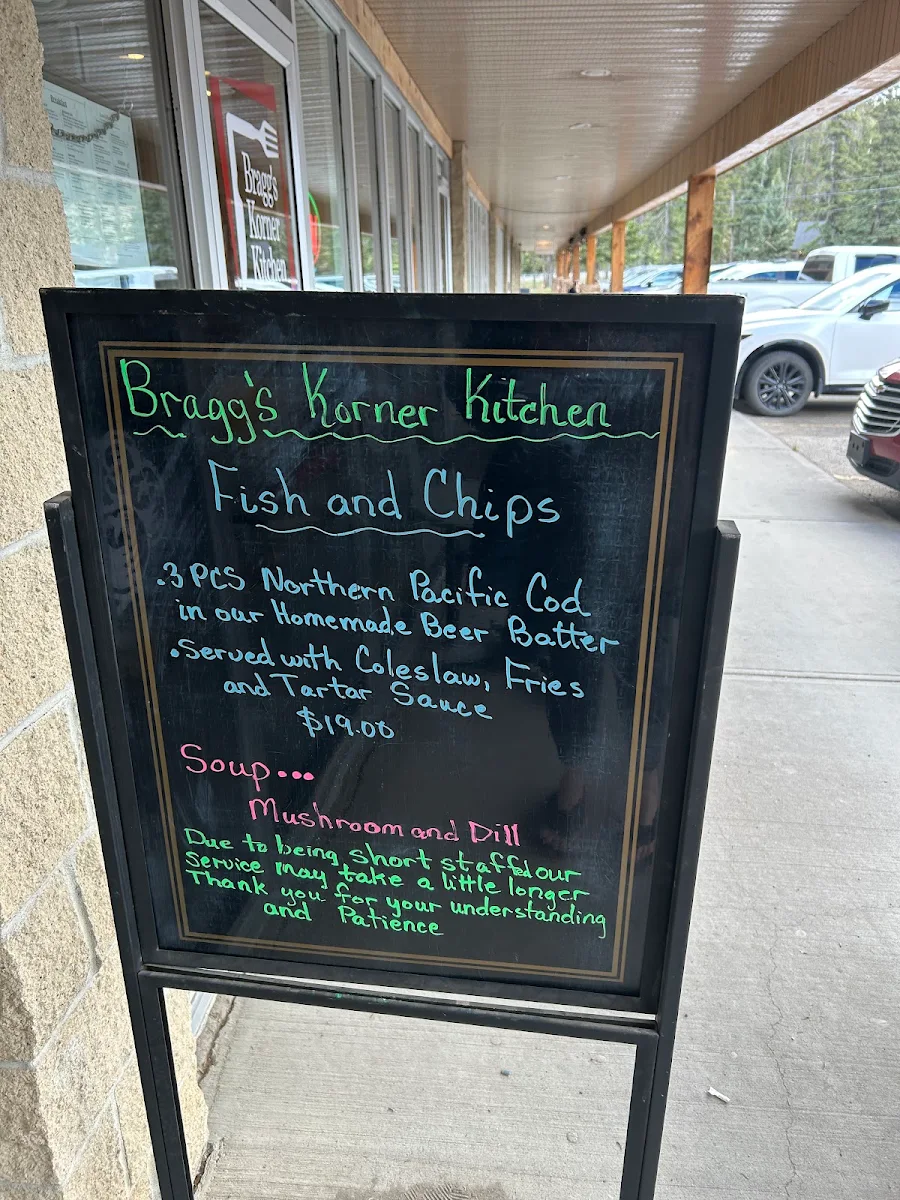 Bragg's
Korner
Kitchen
Bragg's Korner Kitchen
Fish and Chips
.3 PCS Northern Pacific Cod
in our Homemade Beer Batter
.Served with Coleslaw, Fries
and Tartar Sauce
$19.00
Soup...
Mushroom and Dill
Due to being short staffd our
Service may take a little longer
Thank you for your understanding
and Patience